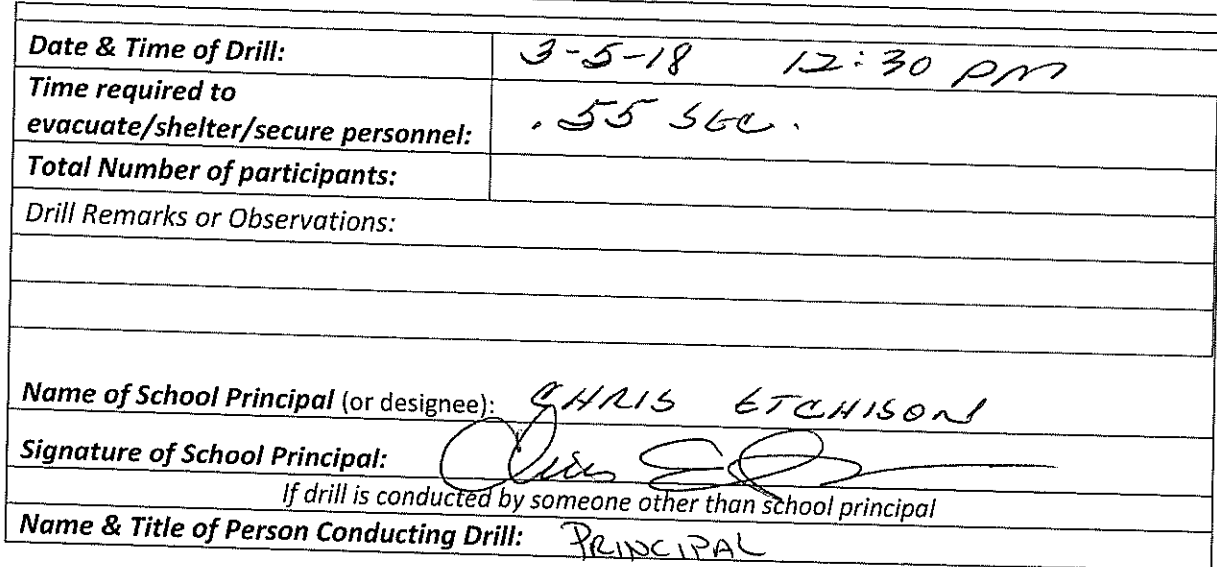 Date & Time of Drill: 3-5-18 12:30 PM
Time required to
evacuate/shelter/secure personnel: .55 SEC.
Total Number of participants:
Drill Remarks or Observations:
Name of School Principal (or designee): CHRIS ETCHISON
Signature of School Principal:
If drill is conducted by someone other than school principal
Name & Title of Person Conducting Drill: PRINCIPAL